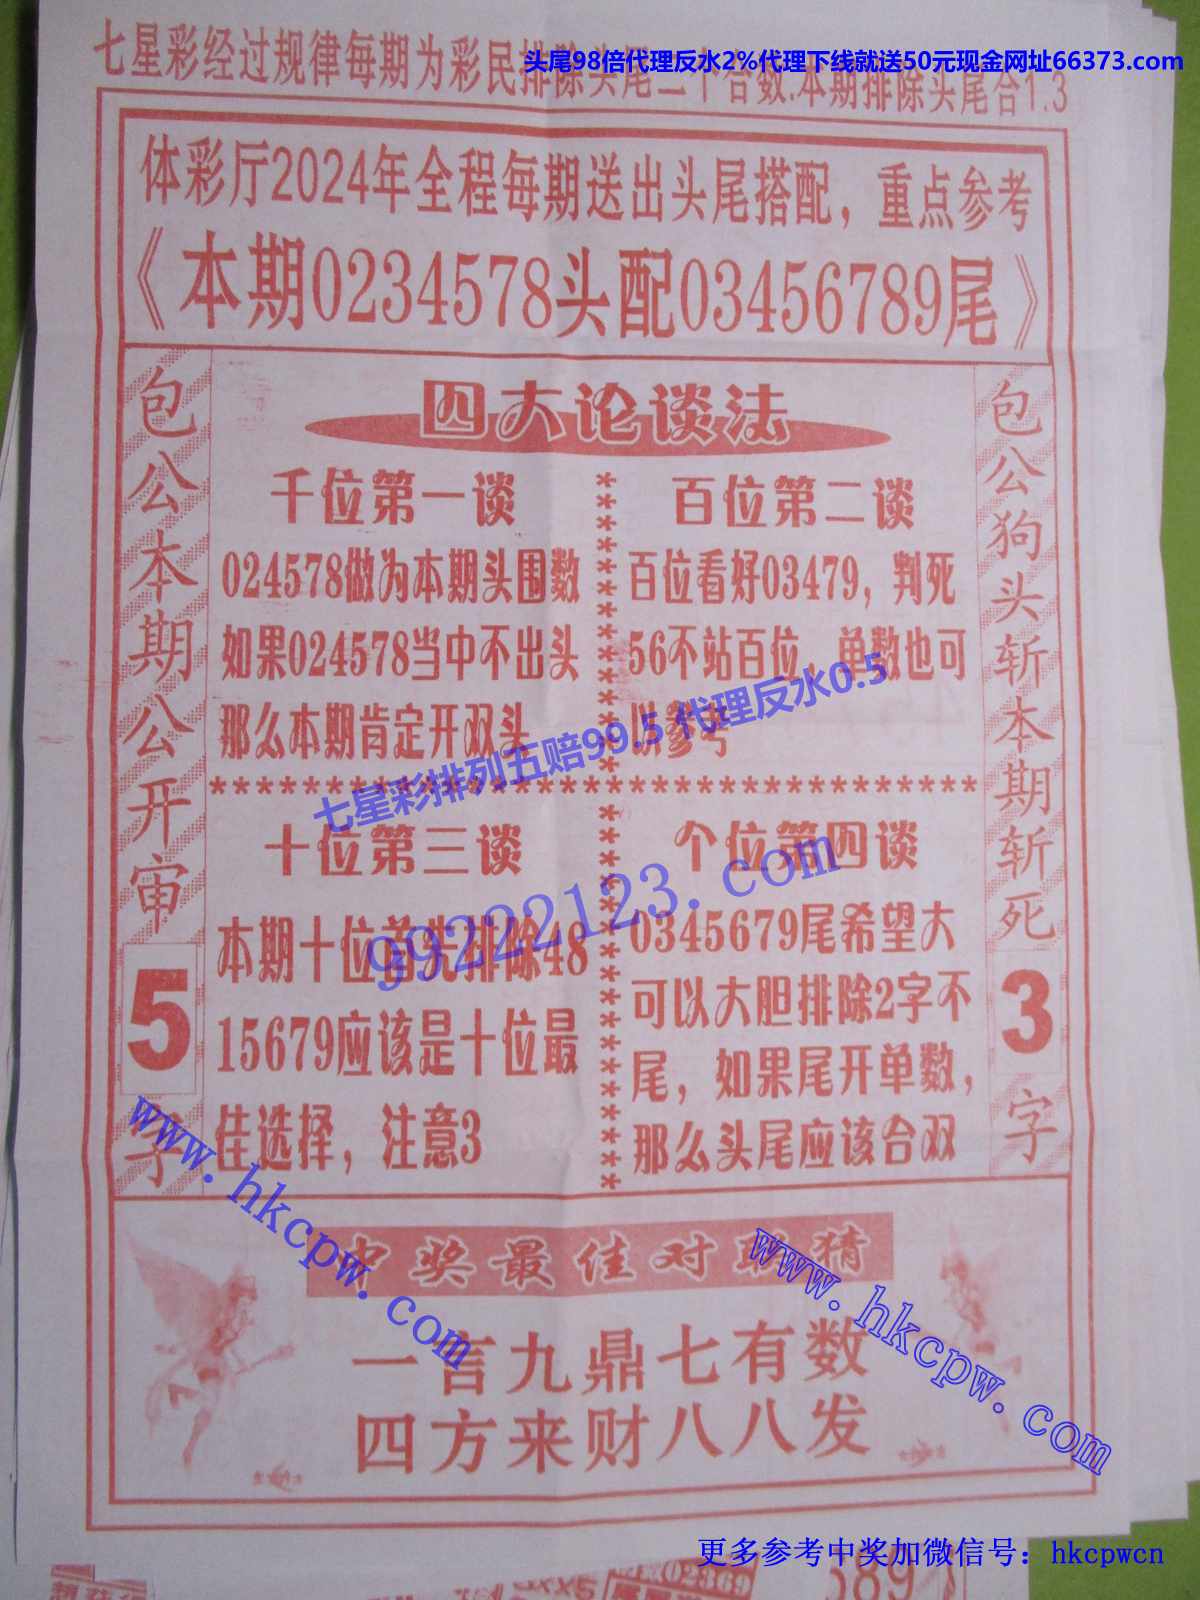 头尾98倍代理反水2%代理下线就送50元现金网址66373.com
七星彩经过规律每期为彩民排除头尾二个合数.本期排除头尾合1.3
体彩厅2024年全程每期送出头尾搭配，重点参考
《本期0234578头配03456789尾》
包公本期公开审5字
四大论谈法
千位第一谈
024578做为本期头围数
如果024578当中不出头
那么本期肯定开双头
百位第二谈
百位看好03479，判死
56不站百位，单数也可
以参考
十位第三谈
本期十位首先排除48
15679应该是十位最
佳选择，注意3
个位第四谈
0345679尾希望大
可以大胆排除2字不
尾，如果尾开单数，
那么头尾应该合双
包公狗头斩本期斩死3字
七星彩排列五赔99.5 代理反水0.5
99222123.com
中奖最佳对联猜
一言九鼎七有数
四方来财八八发
www.hkcpw.com
www.hkcpw.com
更多参考中奖加微信号：hkcpwcn
02369